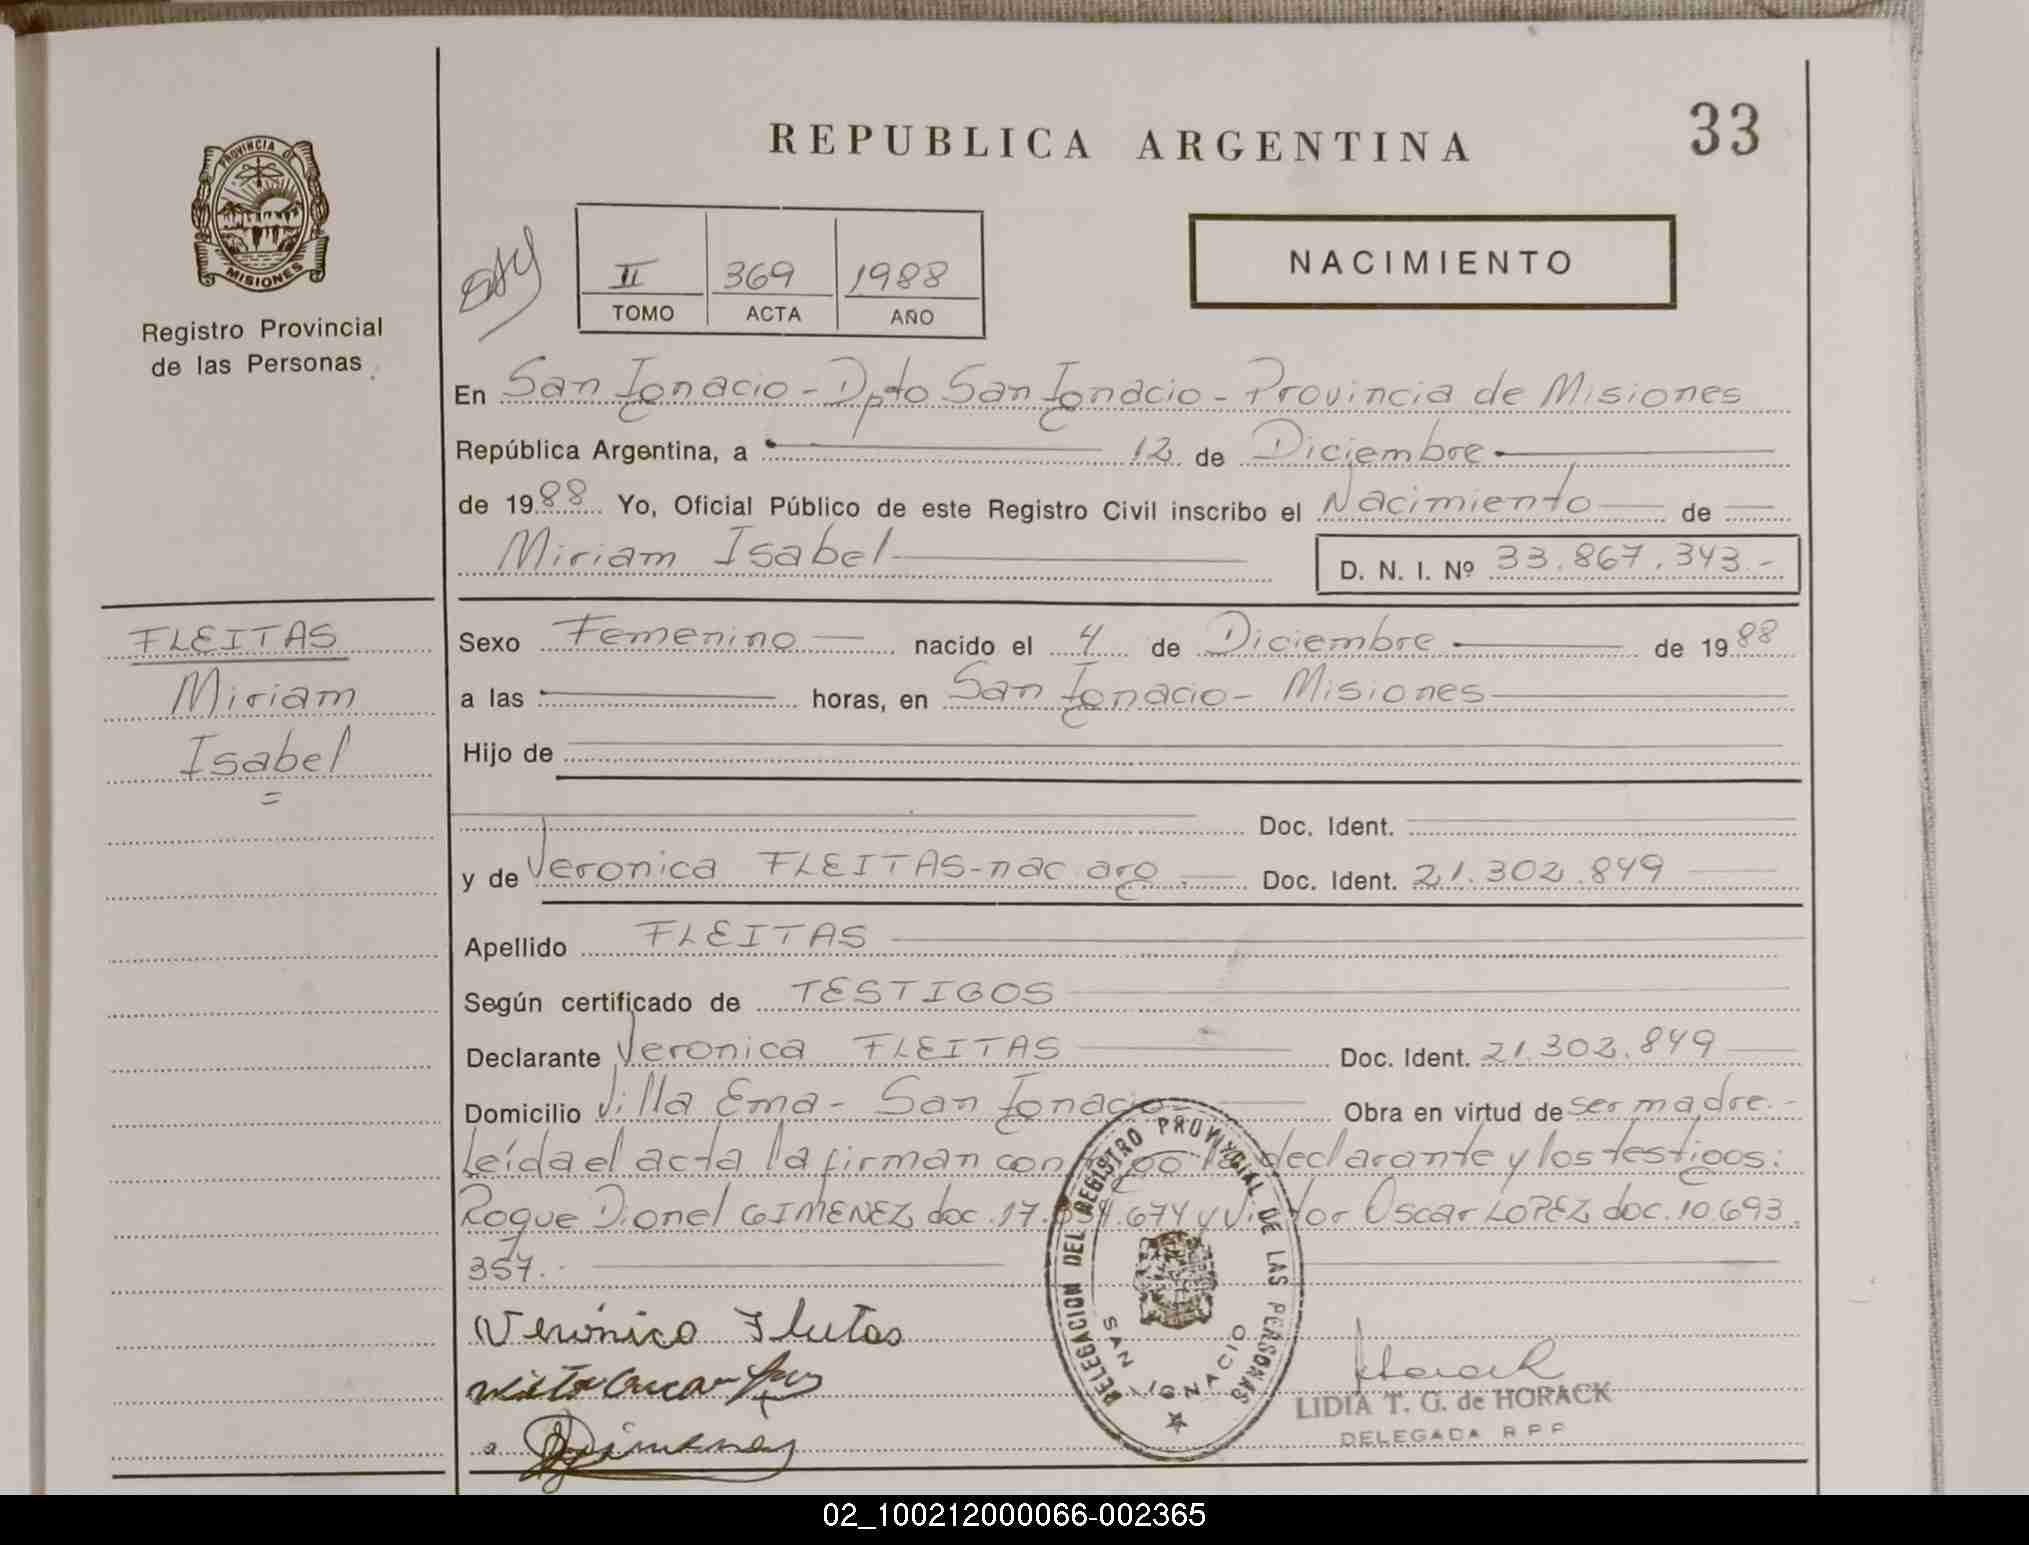 REPUBLICA ARGENTINA
33
PROVINCIA DE
MISIONES
Registro Provincial
de las Personas
II 369 1988
TOMO ACTA AÑO
NACIMIENTO
En San Ignacio - Dpto San Ignacio - Provincia de Misiones
República Argentina, a 12 de Diciembre
de 1988 Yo, Oficial Público de este Registro Civil inscribo el Nacimiento de
Miriam Isabel D. N. I. Nº 33.867.343.-
FLEITAS
Miriam
Isabel
=
Sexo Femenino nacido el 4 de Diciembre de 1988
a las horas, en San Ignacio - Misiones
Hijo de
Doc. Ident.
y de Veronica FLEITAS - nac arg. Doc. Ident. 21.302.849
Apellido FLEITAS
Según certificado de TESTIGOS
Declarante Veronica FLEITAS Doc. Ident. 21.302.849
Domicilio Villa Ema - San Ignacio - Obra en virtud de ser madre.-
Leída el acta la firman con declarante y los testigos:
Roque Dionel GIMENEZ doc. 17. 674 y Victor Oscar LOPEZ doc. 10.693.
357.-
Verónica Fleitas
DELEGACION DEL REGISTRO PROVINCIAL DE LAS PERSONAS
SAN IGNACIO
Horack
LIDIA T. G. de HORACK
DELEGADA R P P
02_100212000066-002365